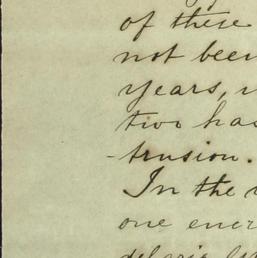 of these
not been
years,
two has
-trusion.
In the
one ener